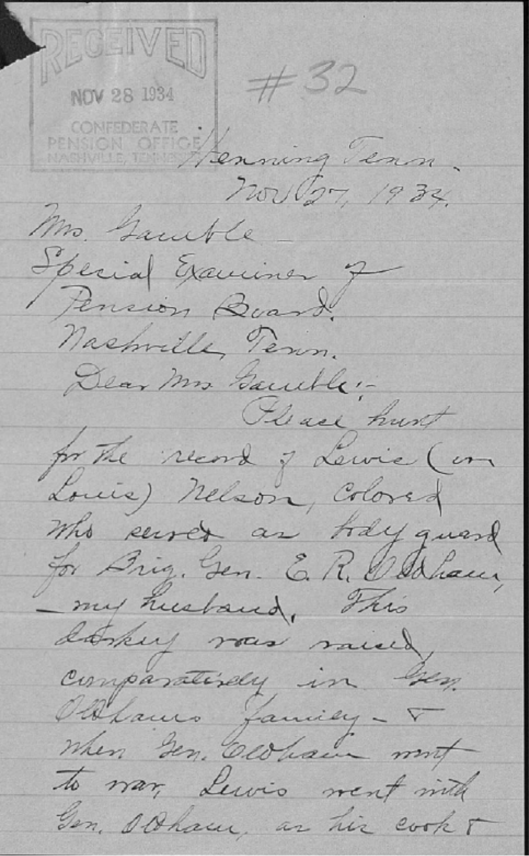 RECEIVED
NOV 28 1934
CONFEDERATE
PENSION OFFICE
NASHVILLE, TENNESSEE
#32
Henning Tenn.
Nov 27, 1934.
Mrs. Gamble
Special Examiner of
Pension Board.
Nashville, Tenn.
Dear Mrs Gamble:-
Please hunt
for the record of Lewis (or
Louis) Nelson, Colored
who served as body guard
for Brig. Gen. E. R. Oldham,
- my husband. This
darkey was raised,
comparatively in Gen.
Oldhams family - &
when Gen. Oldham went
to war, Lewis went with
Gen. Oldham, as his cook &